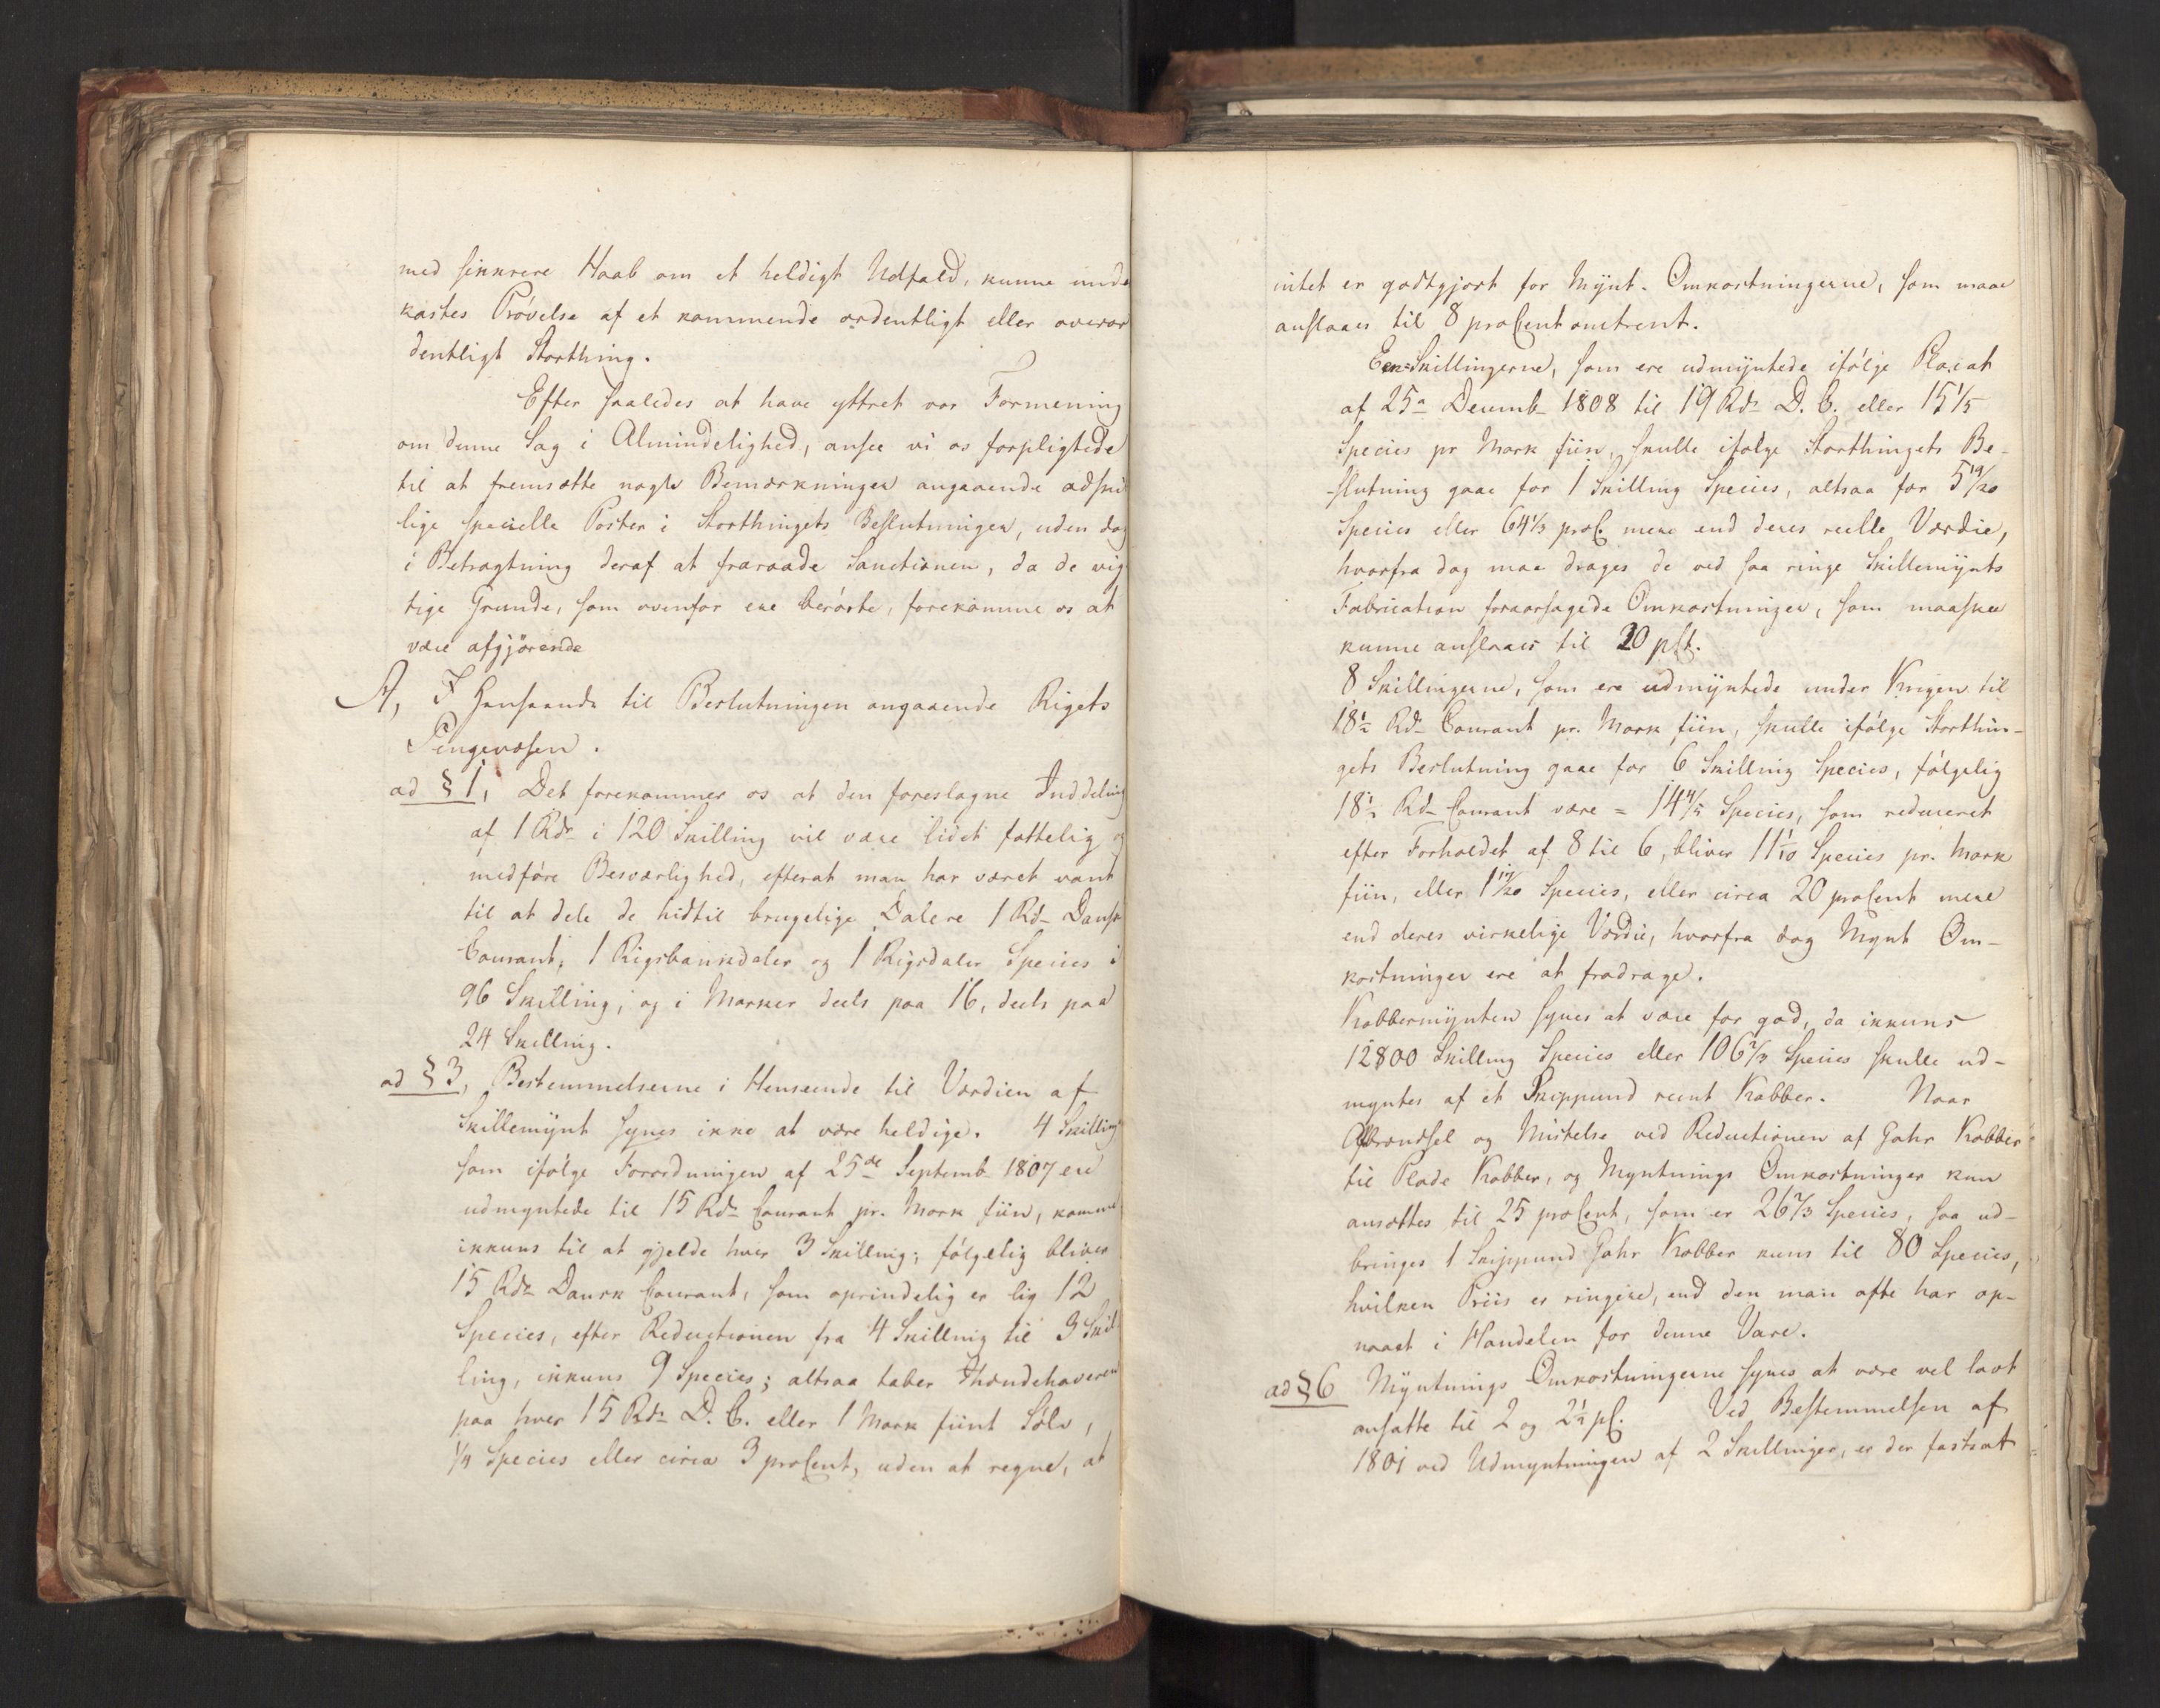 med sikkrere Haab om et heldigt Udfald, kunne unde
kastes Prövelse af et kommende ordentligt eller overor
dentligt Storthing.
Efter saaledes at have yttret vor Formening
om denne Sag i Almindelighed, ansee vi os forpligtede
til at fremsætte nogle Bemærkninger angaaende adskil
lige specielle Poster i Storthingets Beslutninger, uden dog
i Betragtning deraf at fraraade Sanctionen, da de vig
tige Grunde, som ovenfor ere berörte, forekomme os at
være afgjörende
A, I Henseende til Beslutningen angaaende Rigets
Pengevæsen.
ad § 1, Det forekommer os at den foreslagne Inddeling
af 1 Rdr i 120 Skilling vil være lidet fattelig og
medföre Besværlighed, efterat man har været vant
til at dele de hidtil brugelige Dalere 1 Rd- Dansk
Courant, 1 Rigsbankdaler og 1 Rigsdaler Species i
96 Skilling, og i Marker deels paa 16, deels paa
24 Skilling.
ad § 3, Bestemmelserne i Henseende til Værdien af
Skillemynt synes ikke at være heldige. 4 Skilling
som ifölge Forordningen af 25de Septemb 1807 ere
udmyntede til 15 Rdr Courant pr. Mark fiin, komme
ikkuns til at gjelde hver 3 Skilling; fölgelig bliver
15 Rdr Dansk Courant, som oprindelig er lig 12
Species, efter Reductionen fra 4 Skilling til 3 Skil
ling, ikkuns 9 Species; altsaa taber Ihændehaveren
paa hver 15 Rdr D. C. eller 1 Mark fiint Sölv,
1/4 Species eller circa 3 proCent, uden at regne, at
intet er godtgjort for Mynt-Omkostningerne, som maae
anslaaes til 8 proCent omtrent.
Een-Skillingerne, som ere udmyntede ifölge Placat
af 25a Decemb- 1808 til 19 Rdr D. C. eller 15 1/5
Species pr Mark fiin, skulle ifölge Storthingets Be-
slutning gaae for 1 Skilling Species, altsaa for 5 19/20
Species eller 64 1/3 proC. mere end deres reelle Værdie,
hvorfra dog maa drages de ved saa ringe Skillemynts
Fabrication foraarsagede Omkostninger, som maaskee
kunne anslaaes til 20 pCt.
8 Skillingerne, som ere udmyntede under Krigen til
18 1/2 Rd- Courant pr. Mark fiin, skulle ifölge Storthin-
gets Beslutning gaae for 6 Skilling Species, fölgelig
18 1/2 Rd- Courant være = 14 4/5 Species, som reduceret
efter Forholdet af 8 til 6, bliver 11 1/10 Species pr. Mark
fiin, eller 1 17/20 Species, eller circa 20 proCent mere
end deres virkelige Værdie, hvorfra dog Mynt Om-
kostninger ere at fradrage.
Kobbermynten synes at være for god, da ikkuns
12800 Skilling Species eller 106 2/3 Species skulle ud-
myntes af et Skippund reent Kobber. Naar
Afbrændsel og Mistelse ved Reductionen af Gahr Kobber
til Plade Kobber, og Myntnings Omkostninger kun
ansættes til 25 proCent, som er 26 2/3 Species, saa ud-
bringes 1 Skippund Gahr Kobber kuns til 80 Species,
hvilken Priis er ringere, end den man ofte har op-
naaet i Handelen for denne Vare.
ad § 6 Myntnings Omkostningerne synes at være vel lavt
ansatte til 2 og 2 1/2 pC. Ved Bestemmelsen af
1801 ved Udmyntningen af 2 Skillinger, er der fastsat